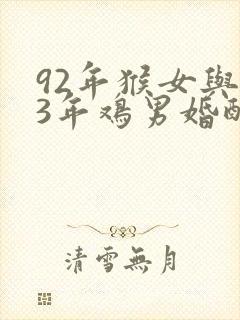 92年猴女與
3年鸡男婚配
清雪無月